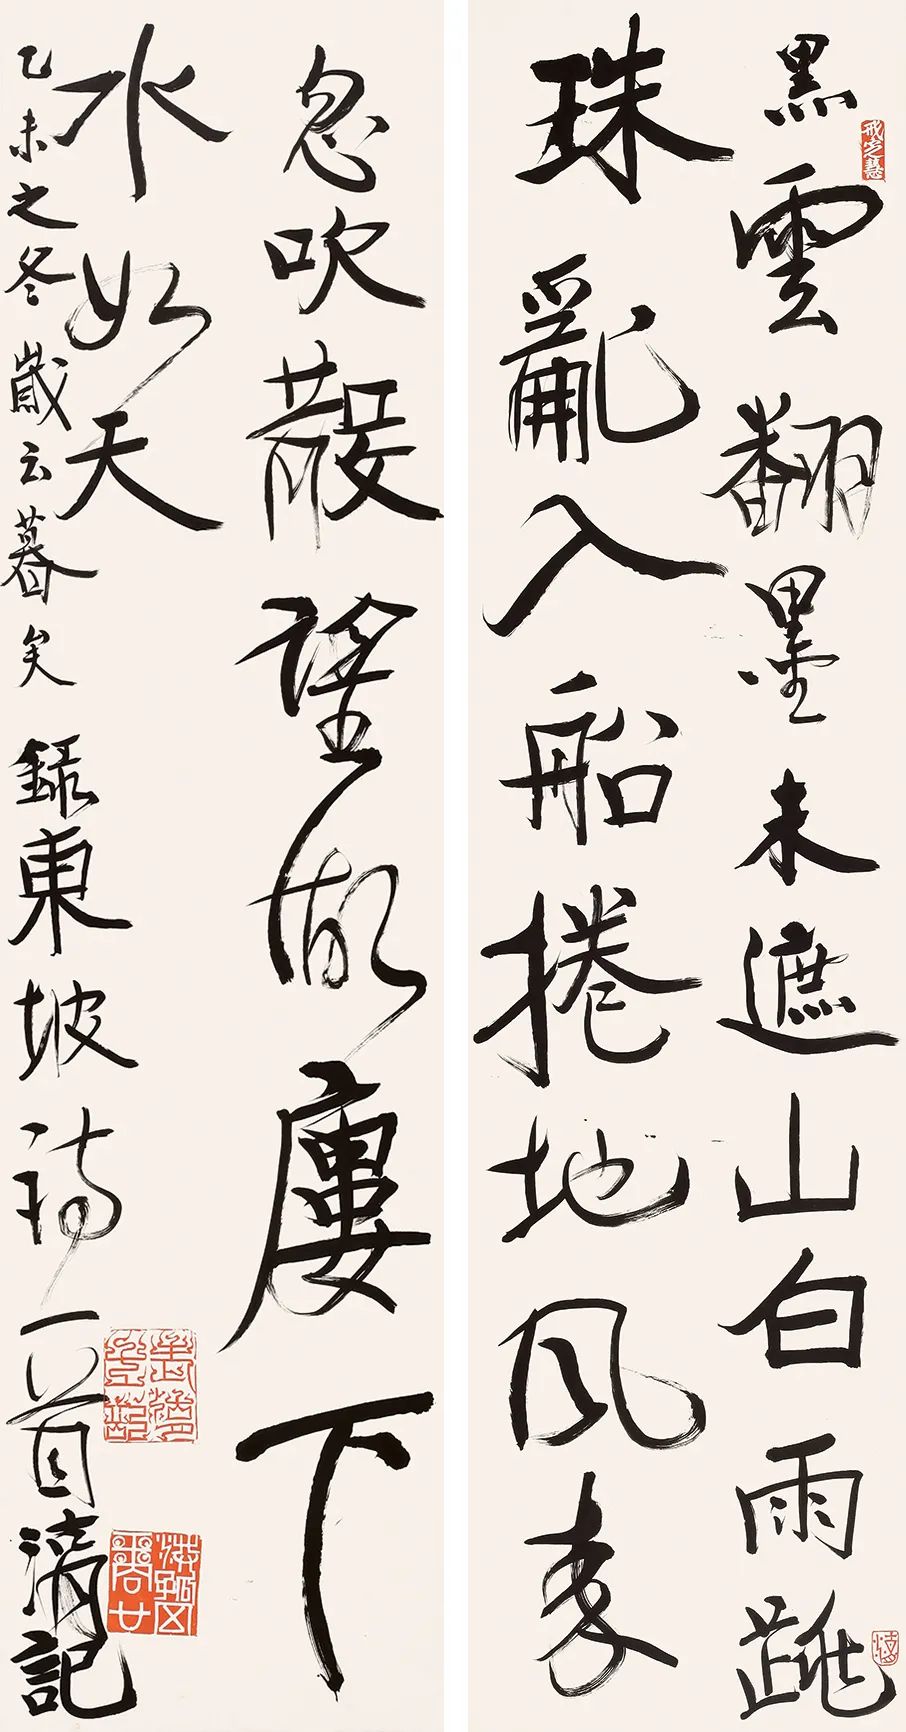 黑雲翻墨未遮山白雨跳
戒定慧
珠亂入船捲地風來
忽吹散望湖廔下
水如天
乙未之冬歲云暮矣錄東坡詩一首記